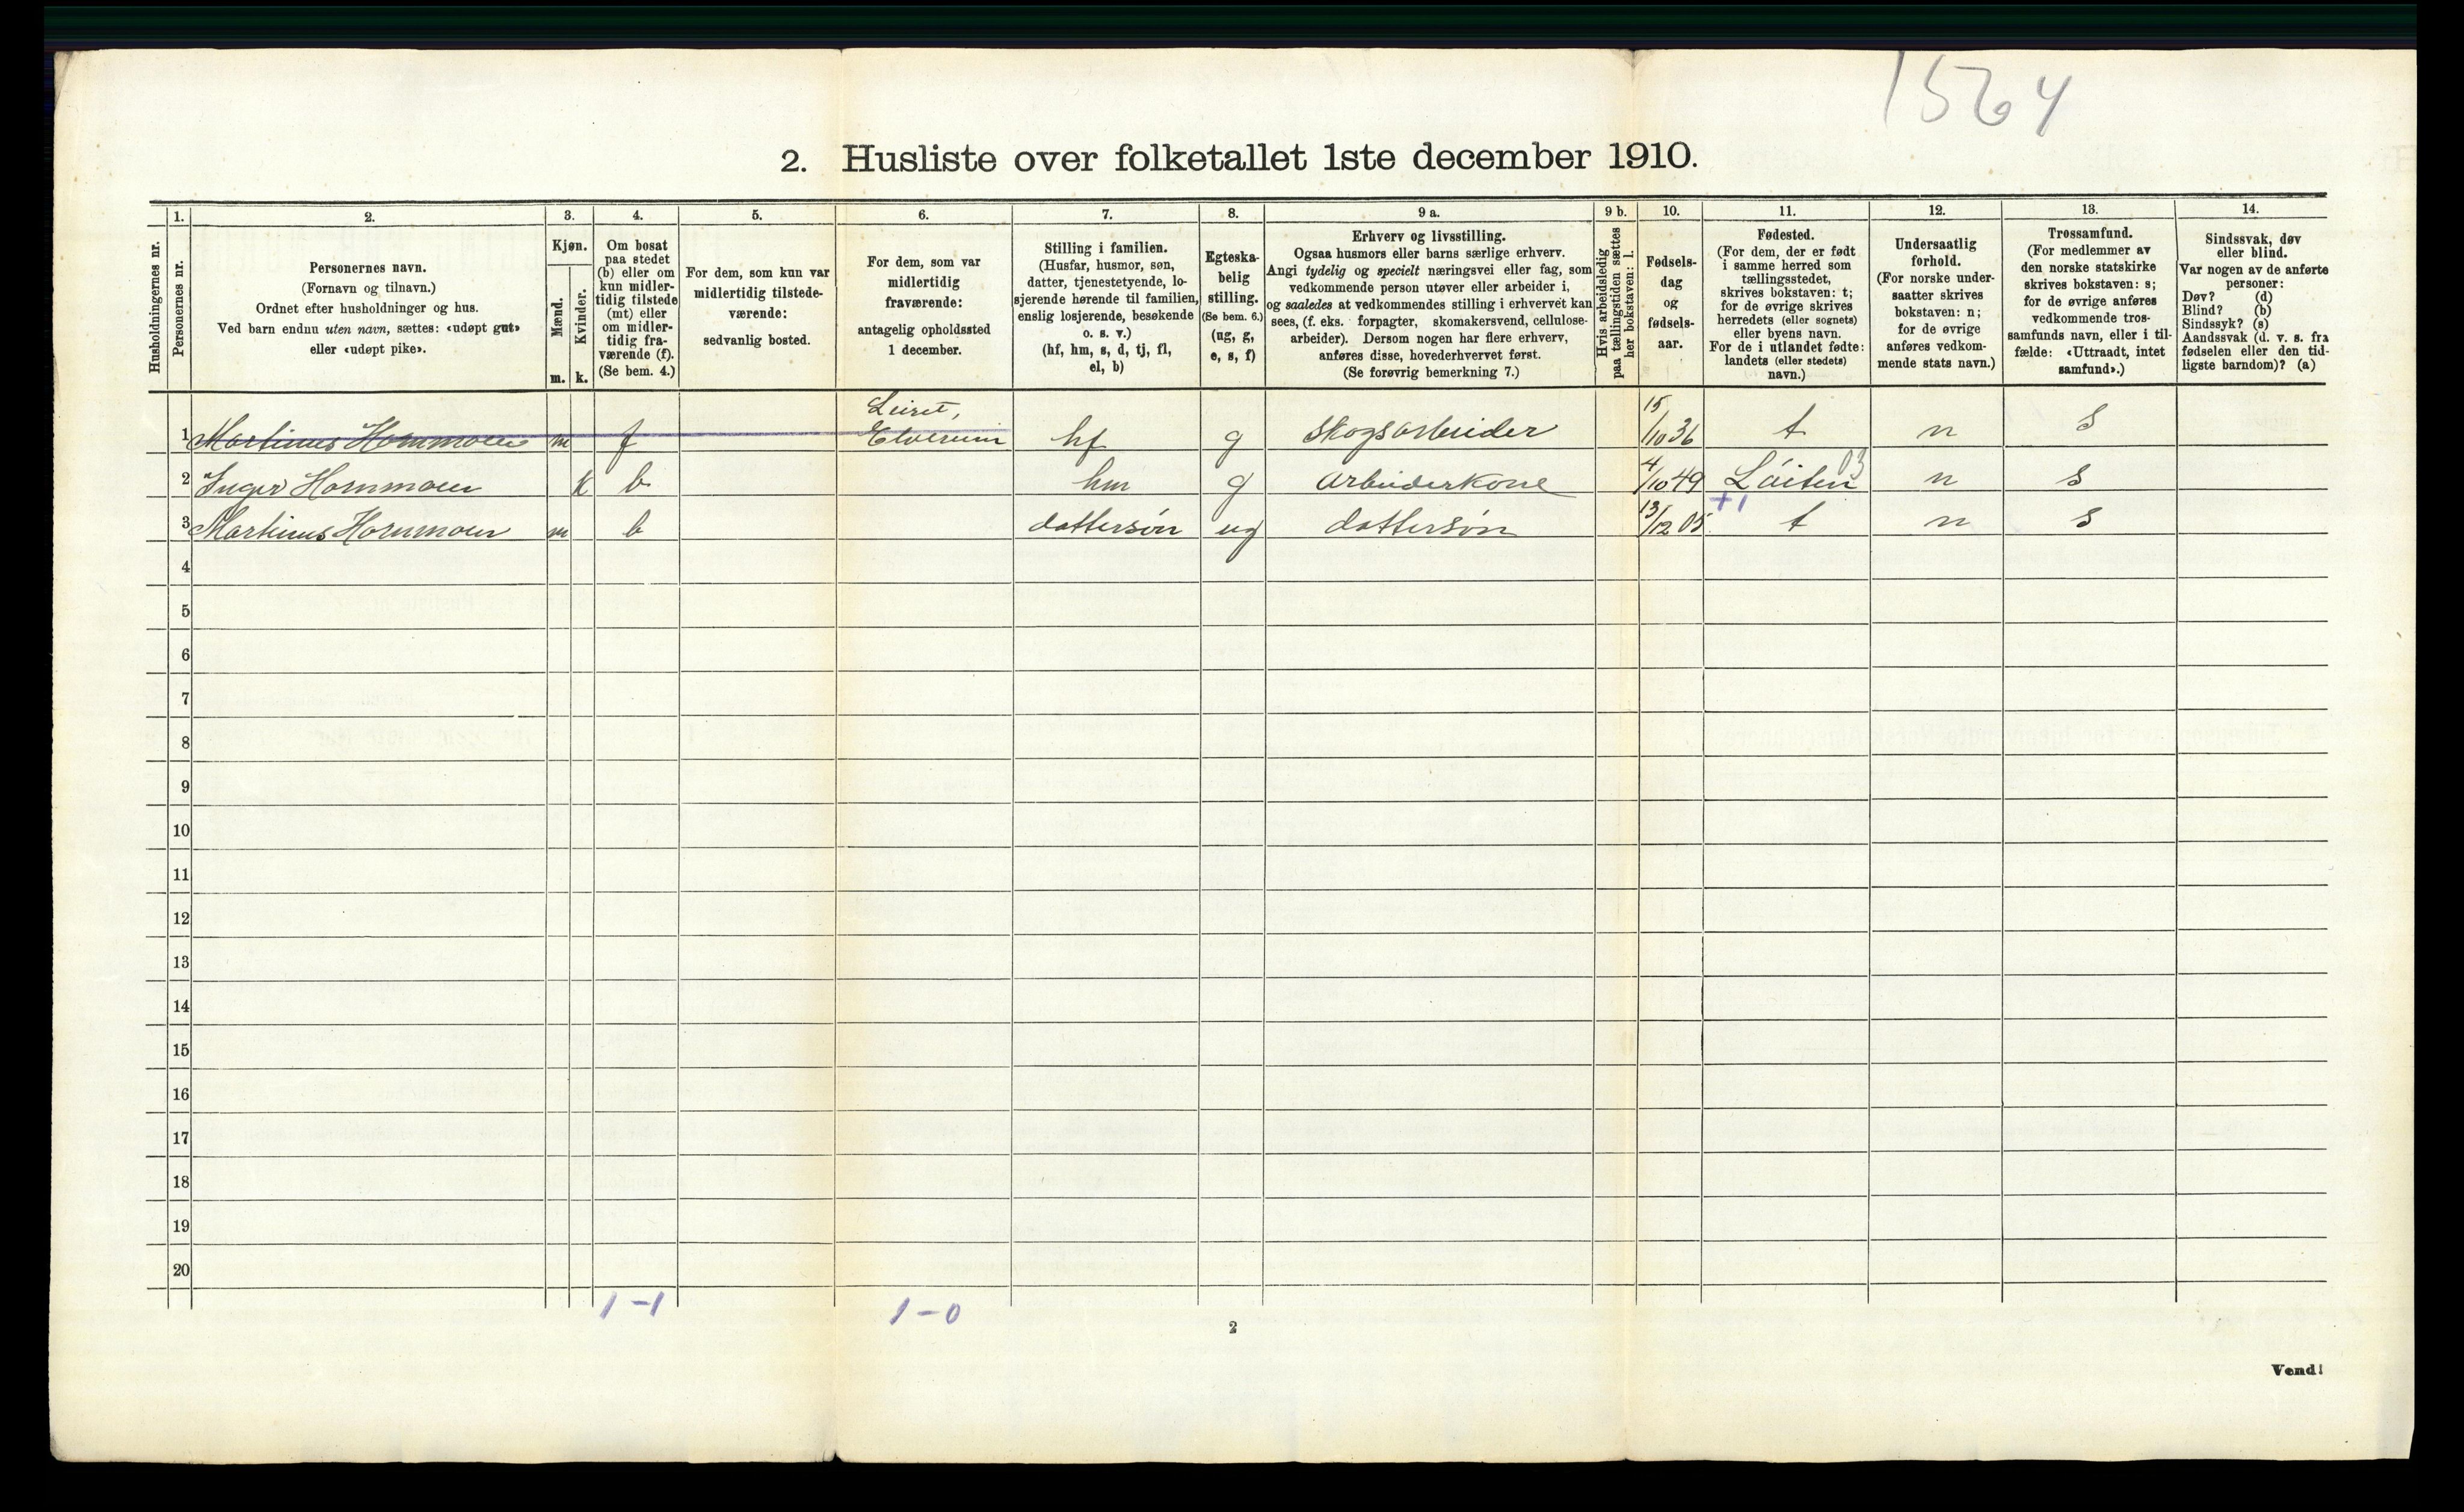 1564
2. Husliste over folketallet 1ste december 1910.
1. 2. 3. 4. 5. 6. 7. 8. 9 a. 9 b. 10. 11. 12. 13. 14.
Husholdningernes nr.
Personernes nr.
Personernes navn.
(Fornavn og tilnavn.)
Ordnet efter husholdninger og hus.
Ved barn endnu uten navn, sættes: «udøpt gut»
eller «udøpt pike».
Kjøn.
Mænd.
Kvinder.
m. k.
Om bosat
paa stedet
(b) eller om
kun midler-
tidig tilstede
(mt) eller
om midler-
tidig fra-
værende (f).
(Se bem. 4.)
For dem, som kun var
midlertidig tilstede-
værende:
sedvanlig bosted.
For dem, som var
midlertidig
fraværende:
antagelig opholdssted
1 december.
Stilling i familien.
(Husfar, husmor, søn,
datter, tjenestetyende, lo-
sjerende hørende til familien,
enslig losjerende, besøkende
o. s. v.)
(hf, hm, s, d, tj, fl,
el, b)
Egteska-
belig
stilling.
(Se bem. 6.)
(ug, g,
e, s, f)
Erhverv og livsstilling.
Ogsaa husmors eller barns særlige erhverv.
Angi tydelig og specielt næringsvei eller fag, som
vedkommende person utøver eller arbeider i,
og saaledes at vedkommendes stilling i erhvervet kan
sees, (f. eks. forpagter, skomakersvend, cellulose-
arbeider). Dersom nogen har flere erhverv,
anføres disse, hovederhvervet først.
(Se forøvrig bemerkning 7.)
Hvis arbeidsledig
paa tællingstiden sættes
her bokstaven: l.
Fødsels-
dag
og
fødsels-
aar.
Fødested.
(For dem, der er født
i samme herred som
tællingsstedet,
skrives bokstaven: t;
for de øvrige skrives
herredets (eller sognets)
eller byens navn.
For de i utlandet fødte:
landets (eller stedets)
navn.)
Undersaatlig
forhold.
(For norske under-
saatter skrives
bokstaven: n;
for de øvrige
anføres vedkom-
mende stats navn.)
Trossamfund.
(For medlemmer av
den norske statskirke
skrives bokstaven: s;
for de øvrige anføres
vedkommende tros-
samfunds navn, eller i til-
fælde: «Uttraadt, intet
samfund».)
Sindssvak, døv
eller blind.
Var nogen av de anførte
personer:
Døv? (d)
Blind? (b)
Sindssyk? (s)
Aandssvak (d. v. s. fra
fødselen eller den tid-
ligste barndom)? (a)
Leiret,
1 Martinus Hornmoen m f Elverum hf g skogsarbeider 15/10 36 t n s
2 Inger Hornmoen k b hm g arbeiderkone 4/10 49 Løiten 03 n s
+1
3 Martinus Hornmoen m b dattersøn ug dattersøn 13/12 05 t n s
4
5
6
7
8
9
10
11
12
13
14
15
16
17
18
19
20
1-1 1-0
2
Vend!